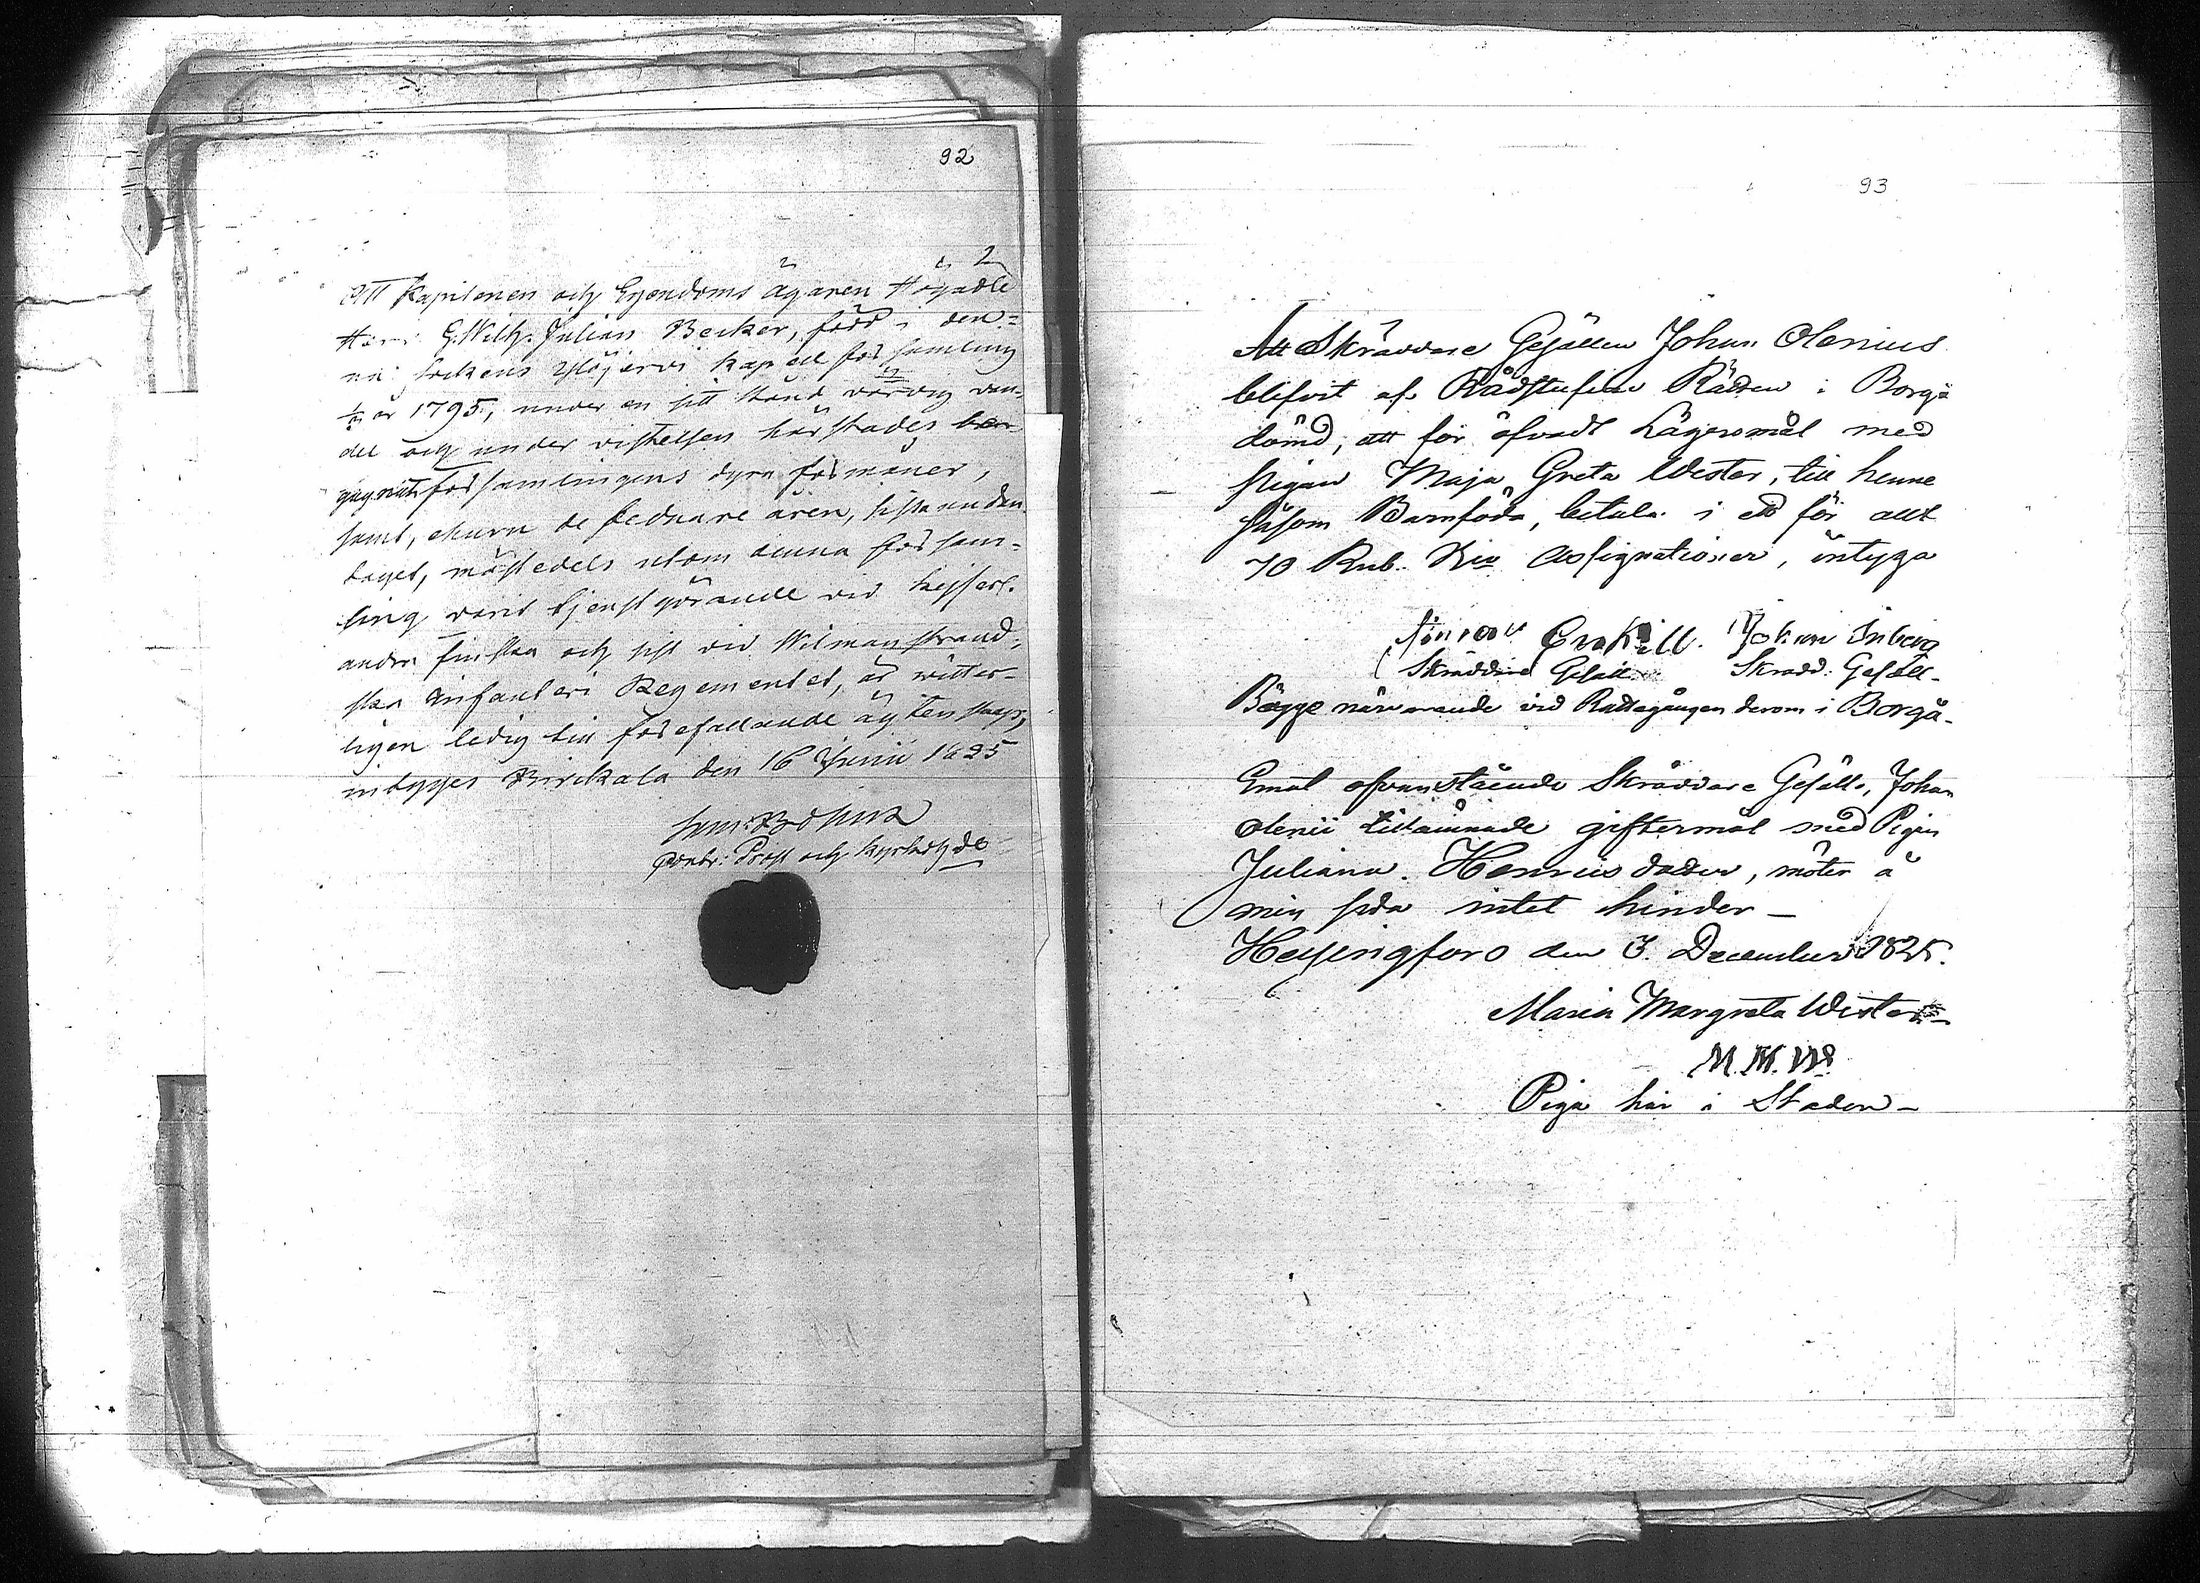 92
Att Kapitenen och Egendoms ägaren Högädle
Herr G. Wilh. Julian Becker, född i den-
na Sockens Ylöjervi Kapell församling
år 1795, under en sitt stånd värdig van-
del och under vistelsen härstädes be-
gagnat församlingens dyra förmåner,
samt, ehuru de sednare åren, sistaundan-
taget, mästedels utom denna försam-
ling varit tjenstgörande vid kejserl.
andra finska och sist vid Wilmanstrand-
ska Infanteri Regementet, är vitter-
ligen ledig till förefallande ägtenskap,
intygges Birckala den 16 Junii 1825
Prost och Kyrkoh de
93
Att Skräddare Gesällen Johan Olenius
blifvit af Rådstufvu Rätten i Borgå
dömd, att för öfvadt Lägersmål med
pigan Maja Greta Wester, till henne
såsom Barnföda, betala i ett för allt
70 Rub. Rio Assignationer, intyga
Johan Inberg
Skräddare Gesäll Skradd. Gesäll-
Bägge närvarande vid Rättegången derom i Borgå-
Emot ofvanstående Skräddare Gesälls, Johan
Olenii tillämnade giftermål med Pigan
Juliana Henricsdotter, möter å
min sida intet hinder_
Helsingfors den 3. December 1825.
Maria Margreta Wester
M. M. W.
Piga här i Staden-